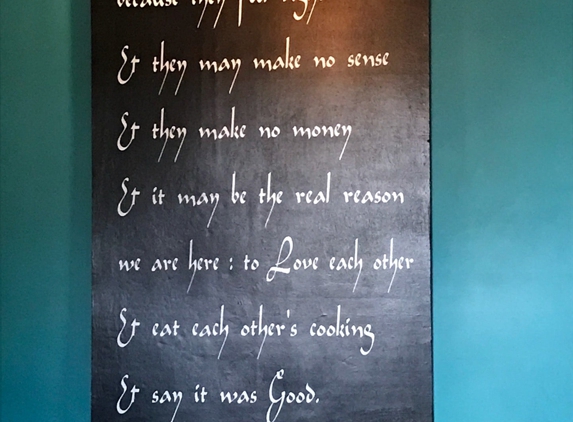 because they feel right
& they may make no sense
& they make no money
& it may be the real reason
we are here : to Love each other
& eat each other's cooking
& say it was Good.